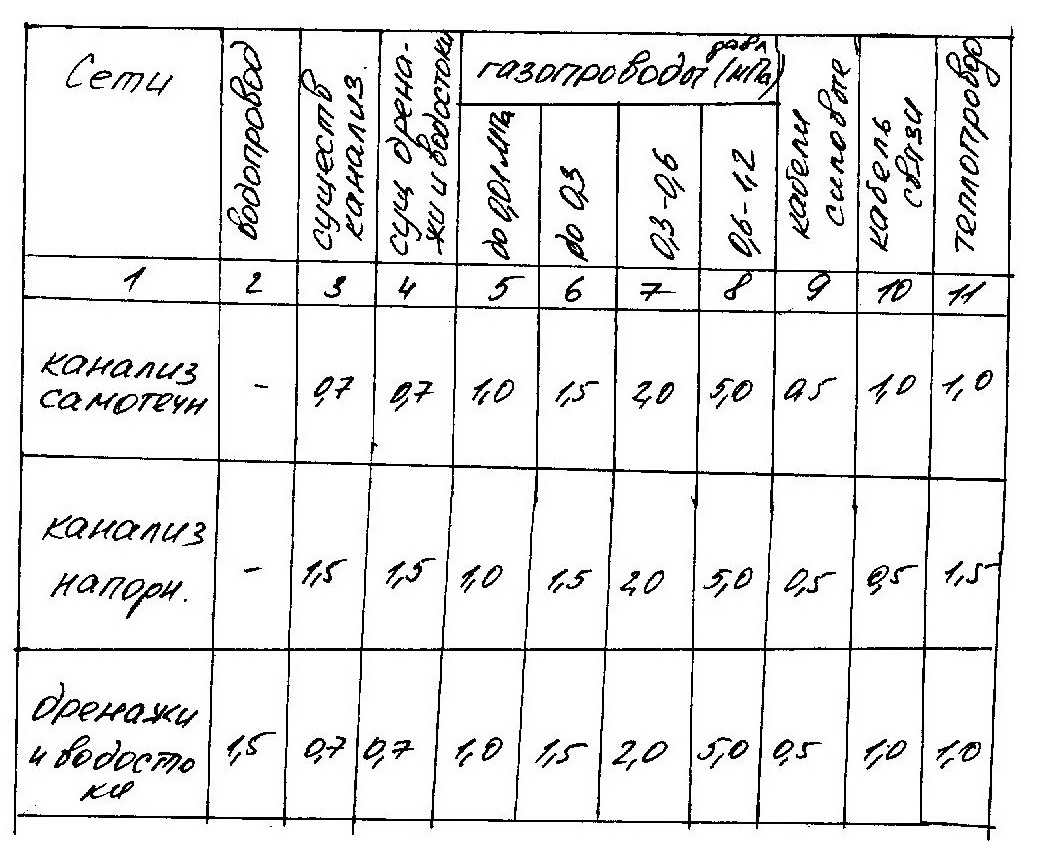 Сети
водопровод
существ
канализ.
сущ дрена-
жи и водостоки
газопроводы давл (мПа)
до 0,01 мПа
до 0,3
0,3-0,6
0,6-1,2
кабели
силовые
кабель
связи
теплопровод
1 2 3 4 5 6 7 8 9 10 11
канализ
самотечн - 0,7 0,7 1,0 1,5 2,0 5,0 0,5 1,0 1,0
канализ
напорн. - 1,5 1,5 1,0 1,5 2,0 5,0 0,5 0,5 1,5
дренажи
и водосто 1,5 0,7 0,7 1,0 1,5 2,0 5,0 0,5 1,0 1,0
ки